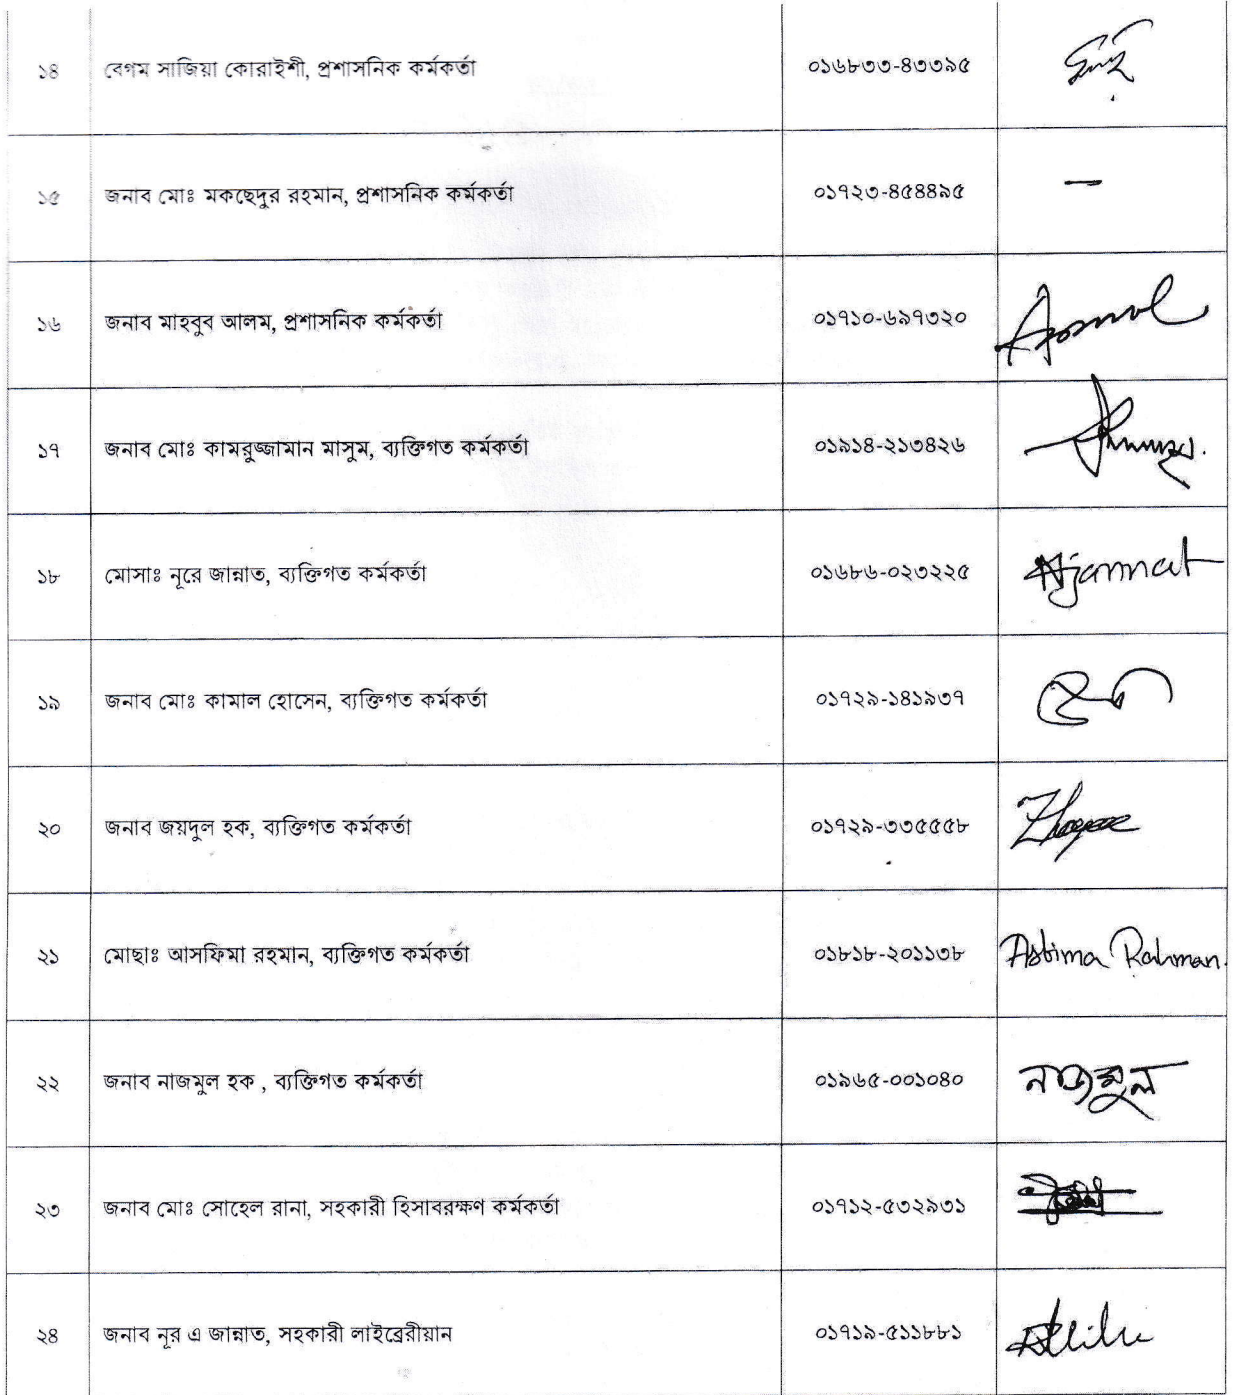 ১৪ বেগম সাজিয়া কোরাইশী, প্রশাসনিক কর্মকর্তা ০১৬৮৩৩-৪৩৩৯৫
১৫ জনাব মোঃ মকছেদুর রহমান, প্রশাসনিক কর্মকর্তা ০১৭২৩-৪৫৪৪৯৫ —
১৬ জনাব মাহবুব আলম, প্রশাসনিক কর্মকর্তা ০১৭১০-৬৯৭৩২০
১৭ জনাব মোঃ কামরুজ্জামান মাসুম, ব্যক্তিগত কর্মকর্তা ০১৯১৪-২১৩৪২৬
১৮ মোসাঃ নূরে জান্নাত, ব্যক্তিগত কর্মকর্তা ০১৬৮৬-০২৩২২৫ Njannat
১৯ জনাব মোঃ কামাল হোসেন, ব্যক্তিগত কর্মকর্তা ০১৭২৯-১৪১৯৩৭
২০ জনাব জয়দুল হক, ব্যক্তিগত কর্মকর্তা ০১৭২৯-৩৩৫৫৫৮
২১ মোছাঃ আসফিমা রহমান, ব্যক্তিগত কর্মকর্তা ০১৮১৮-২০১১৩৮ Asfima Rahman.
২২ জনাব নাজমুল হক , ব্যক্তিগত কর্মকর্তা ০১৯৬৫-০০১০৪০ নাজমুল
২৩ জনাব মোঃ সোহেল রানা, সহকারী হিসাবরক্ষণ কর্মকর্তা ০১৭১২-৫৩২৯৩১
২৪ জনাব নূর এ জান্নাত, সহকারী লাইব্রেরীয়ান ০১৭১৯-৫১১৮৮১